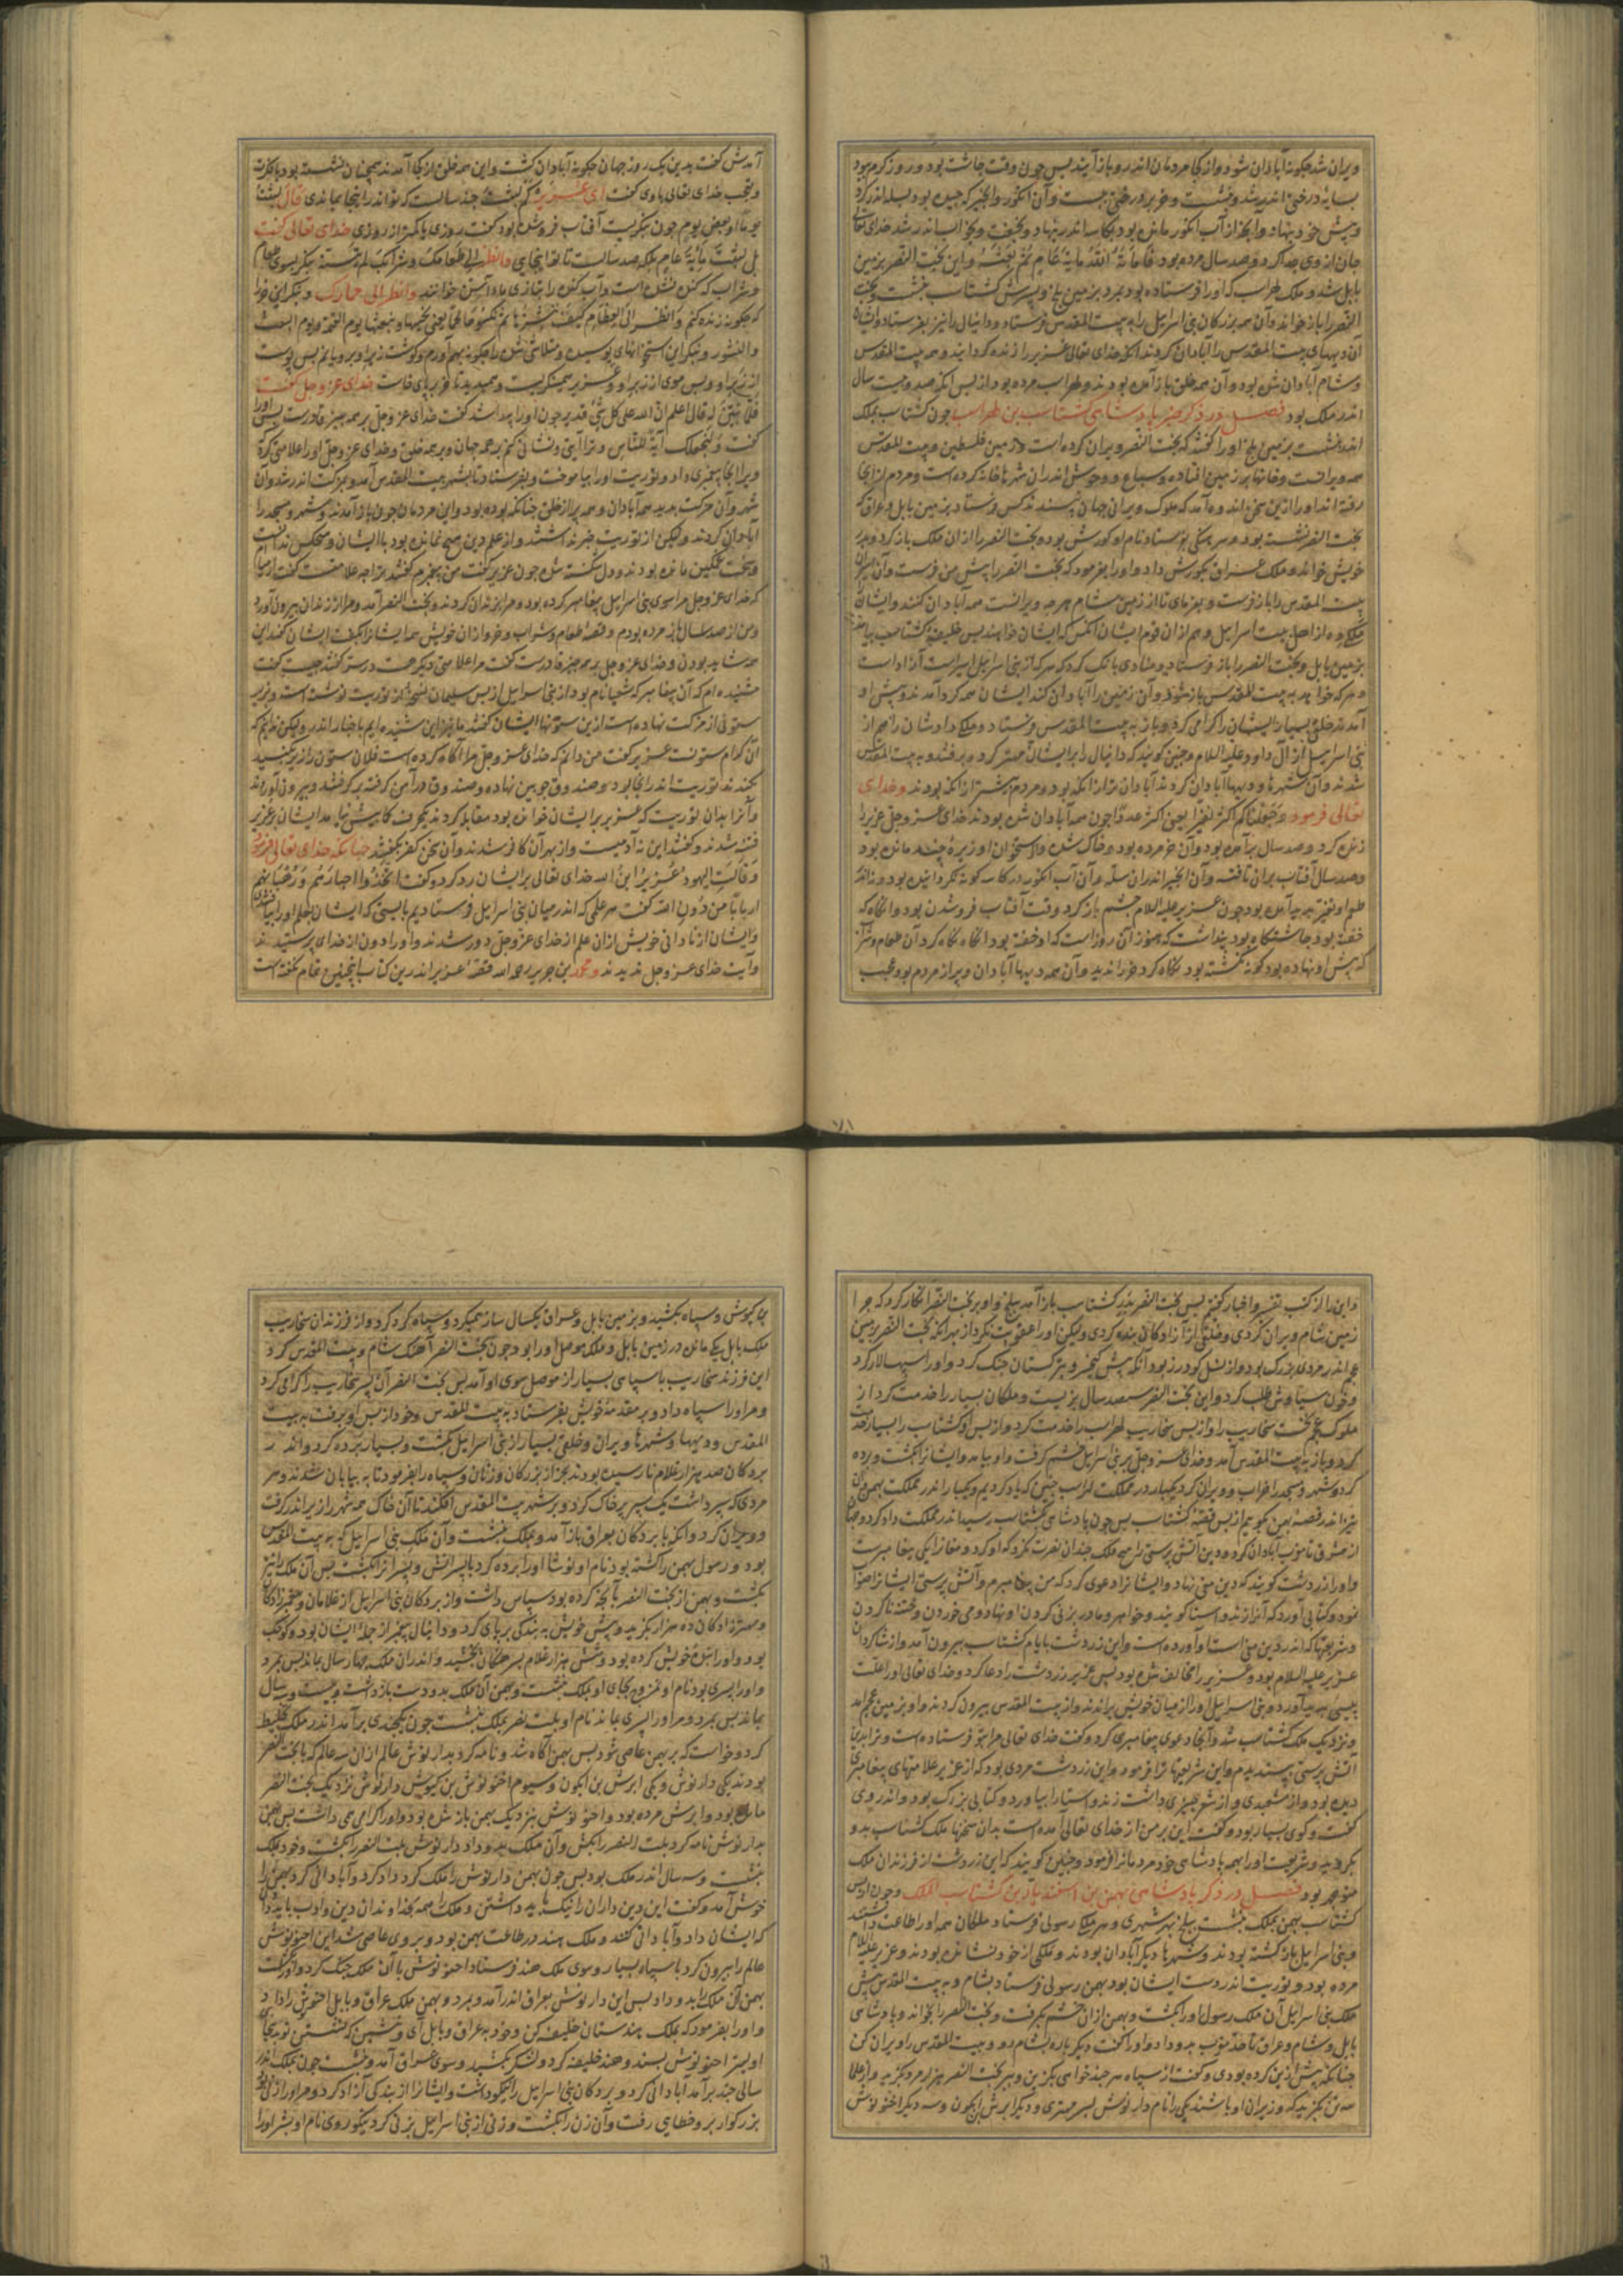 ویران شد چگونه آبادان شود و از کجا مردمان اندرو باز آیند پس چون وقت چاشت بود و روز گرم بود
بسایه درختی اندر شد و بنشست و خر بر درختی ببست و آن انگور و انجیر که چیده بود بسله اندر کرد
جان از وی جدا کرد و صد سال مرده بود فاماته الله مایة عام ثم بعثه و این بخت النصر بزمین
بابل شد و ملک لهراسب که او را فرستاده بود بمرد بزمین بلخ و پسرش گشتاسب بنشست و بخت
النصر را باز خواند و آن همه بزرگان بنی اسراییل را به بیت المقدس فرستاد و دانیال را نیز بفرستاد و ایشان
آن دیههای بیت المقدس را آبادان کردند آنگه خدای تعالی عزیر را زنده گردانید و همه بیت المقدس
و شام آبادان شده بود و آن همه خلق باز آمده بودند و لهراسب مرده بود از پس آنکه صد و بیست سال
اندر ملک بود فصل در ذکر خبر پادشاهی گشتاسب بن لهراسب چون گشتاسب بملک
اندر بنشست بزمین بلخ او را گفتند که بخت النصر ویران کرده است زمین فلسطین و بیت المقدس
همه ویرانست و خانها بر زمین افتاده و سباع و وحوش اندران شهرها خانه کرده است و مردم از آنجا
بخت النصر نشسته بود و سرهنگی بفرستاد نام او کورش بود و بخت النصر را از آن ملک باز کرد و بدر
خویش خواند و ملک عراق بکورش داد و او را بفرمود که بخت النصر را پیش من فرست و آن اسیران
بیت المقدس را باز فرست و بفرمای تا از زمین شام هر چه ویرانست همه آبادان کنند و ایشان
بزمین بابل و بخت النصر را باز فرستاد و منادی بانگ کرد که هر که از بنی اسراییل اسیر است آزاد است
و هر که خواهد به بیت المقدس باز شود و آن زمین را آبادان کند ایشان همه گرد آمدند و پیش او
آمدند خلقی بسیار ایشان را گرامی کرد و باز به بیت المقدس فرستاد و ملکی دادشان را هم از
بنی اسراییل از آل داود علیه السلام و چنین گویند که دانیال را بر ایشان مهتر کرد و برفتند و به بیت المقدس
شدند و آن شهرها و دیهها آبادان کردند آبادان تر از آنکه بود و مردم بیشتر از آنکه بودند و خدای
تعالی فرمود و جعلناکم اکثر نفیرا یعنی اکثر عددا چون همه آبادان شده بودند خدای عز و جل عزیر را
زنده کرد و صد سال برآمده بود و آن خر مرده بود و خاک شده و استخوان او ریزه چند مانده بود
و صد سال آفتاب بران تافته و آن انجیر اندران سله و آن آب انگور در کاسه گونه نگردانیده بود و نه از
طعم او تغیر پدید آمده بود چون عزیر علیه السلام چشم باز کرد وقت آفتاب فروشدن بود و آنگاه که
خفته بود چاشتگاه بود پنداشت که هنوز آن روز است که او خفته بود آنگاه نگاه کرد آن طعام و شراب
که پیش او نهاده بود گونه نگشته بود نگاه کرد خر را ندید و آن همه دیهها آبادان و پر از مردم بود و عجب
آمدش گفت بدین یک روز جهان چگونه آبادان گشت و این همه خلق از کجا آمدند همچنان نشسته بود با فکرت
و تعجب خدای تعالی با وی گفت ای عزیر کم لبثت چند سالست که تو اندر اینجا بماندی قال لبثت
یوما او بعض یوم چون بنگریست آفتاب فروشده بود گفت روزی یا کمتر از روزی خدای تعالی گفت
بل لبثت مایة عام بلکه صد سالست تا تو اینجایی فانظر الی طعامک و شرابک لم یتسنه بنگر بسوی طعام
که چگونه زنده کنم وانظر الی العظام کیف ننشزها ثم نکسوها لحما
و النشور و بنگر این استخوانهای پوسیده و متلاشی شده را چگونه بهم آورم و گوشت زبر او برویانم پس پوست
از زبر او و پس موی از زبر او و عزیر همی نگریست و همی دید تا خر بر پای خاست خدای عز و جل گفت
فلما تبین له قال اعلم ان الله علی کل شیء قدیر چون او را پیدا شد گفت خدای عز و جل بر همه چیز قادرست
گفت و لنجعلک آیة للناس و ترا آیتی و نشانی کنم بر همه جهان و بر همه خلق و خدای عز و جل او را علامتی کرد
شهر و آن حرکت بدید همه آبادان و همه پر از خلق چنانکه بوده بود و این مردمان چون باز آمدند و شهر و مسجد را
آبادان کردند و لیکن از توریت خبر نداشتند و از علم دین هیچ نمانده بود با ایشان و هیچکس ندانست
و سخت غمگین مانده بودند و دل شکسته شده چون عزیر گفت من پیغمبرم گفتند ترا چه علامتست گفت
که خدای عز و جل مرا سوی بنی اسراییل پیغامبر کرده بود و مرا بزندان کردند و بخت النصر آمد و مرا از زندان بیرون آورد
و من از صد سال باز مرده بودم و قصه طعام و شراب و خر و از آن خویش همه ایشانرا بگفت ایشان گفتند این
همه شاید بودن و خدای عز و جل بر همه چیز قادرست گفت مرا علامتی دیگر هست درستر گفتند چیست گفت
شنیده ام که آن پیغامبر که شعیا نام بود از بنی اسراییل از پس سلیمان نسختی از توریت نوشته است و بزیر
ستونی از مزکت نهاده است ازین ستونها ایشان گفتند ما نیز این شنیده ایم باخبار اندر ولیکن ندانیم که
آن کدام ستونست عزیر گفت من دانم که خدای عز و جل مرا آگاه کرده است فلان ستون را زیر بکنید
بکندند توریت اندر آنجا بود و صندوق چوبین نهاده و صندوق در آهن گرفته برگرفتند و بیرون آوردند
و آنرا بدان توریت که عزیر بر ایشان خوانده بود مقابله کردند
فتنه شدند و گفتند این نه آدمیست و از بهر آن کافر شدند و آن سخن کفر بگفتند چنانکه خدای تعالی فرمود
و قالت الیهود عزیر ابن الله خدای تعالی بر ایشان رد کرد و گفت اتخذوا احبارهم و رهبانهم
اربابا من دون الله گفت مر علمی که اندر میان بنی اسراییل فرستادیم
و ایشان از نادانی خویش از آن علم از خدای عز و جل دور شدند و او را دون از خدای پرستیدند
و آیت خدای عز و جل ندیدند و محمد ابن جریر رحمه الله قصه عزیر اندرین کتاب اینچنین تمام نگفته است
و این را از کتب تفسیر و اخبار گفتیم پس بخت النصر بدر گشتاسب باز آمد ببلخ و او بر بخت النصر انکار کرد که چرا
زمین شام ویران کردی و خلقی از آزادگان بنده کردی و لیکن او را عقوبت نکرد از بهر آنکه بخت النصر بزمین
عجم اندر مردی بزرگ بود و از نسل گودرز بود آنکه پیش کیخسرو بترکستان جنگ کرد و او را سپهسالار کرد
و خون سیاوش طلب کرد و این بخت النصر سیصد سال بزیست و ملکان بسیار را خدمت کرد از
ملوک عجم نخست سخاریب را و از پس سخاریب لهراسب را خدمت کرد و از پس او گشتاسب را بسیار خدمت
کرد و باز به بیت المقدس آمد و خدای عز و جل بر بنی اسراییل خشم گرفت و او بیامد و ایشانرا بکشت و برده
کرد و شهر و مسجد را خراب و ویران کرد یکبار در مملکت لهراسب چنین که یاد کردیم و یکبار اندر مملکت بهمن و آن
نیز اندر قصه بهمن بگوییم از پس قصه گشتاسب پس چون پادشاهی بگشتاسب رسید اندر مملکت داد کرد و جهان
از مشرق تا مغرب آبادان کرد و دین آتش پرستی را هیچ ملک چندان نصرت نکرد که او کرد و مغانرا یکی پیغامبرست
و او را زردشت گویند که دین مغی نهاد و ایشانرا دعوی کرد که من پیغامبرم و آتش پرستی ایشانرا صواب
نمود و کتابی آورد که آنرا زند و استا گویند و خواهر و مادر بزنی کردن او نهاد و می خوردن و ختنه ناکردن
و شریعتها که اندر دین مغی است او آورده است و این زردشت بایام گشتاسب بیرون آمد و از شاگردان
عزیر علیه السلام بود و عزیر را مخالف شده بود پس عزیر زردشت را دعا کرد و خدای تعالی او را علت
پیسی پدید آورد و بنی اسراییل او را از میان خویش براندند و از بیت المقدس بیرون کردند و او بزمین عجم آمد
و نزدیک ملک گشتاسب شد و آنجا دعوی پیغامبری کرد و گفت خدای تعالی مرا بتو فرستاده است و ترا بدین
آتش پرستی پسندیدم و این شریعتها ترا فرمود و این زردشت مردی بود که از عزیر علامتهای پیغامبری
دیده بود و از مشعبدی و از شعر چیزی داشت زند و استا را بیاورد و کتابی بزرگ بود و اندر وی
گفت و گوی بسیار بود و گفت این بر من از خدای تعالی آمده است بدان سخنها ملک گشتاسب بدو
بگروید و شریعت او را بهمه پادشاهی خود مردمانرا فرمود و چنین گویند که این زردشت از فرزندان ملک
منوچهر بود فصل در ذکر پادشاهی بهمن بن اسفندیار بن گشتاسب الملک و چون از پس
گشتاسب بهمن بملک بنشست ببلخ بهر شهری و هر ملکی رسولی فرستاد و ملکان همه او را طاعت داشتند
و بنی اسراییل باز گشته بودند و شهرها دیگر آبادان بودند و ملکی از خود نشانده بودند و عزیر علیه السلام
مرده بود و توریت اندر دست ایشان بود بهمن رسولی فرستاد بشام و به بیت المقدس پیش
ملک بنی اسراییل آن ملک رسول او را بکشت و بهمن از آن خشم بگرفت و بخت النصر را بخواند و پادشاهی
بابل و شام و عراق تا حد مغرب بدو داد و او را گفت دیگر باره بشام رو و بیت المقدس را ویران کن
چنانکه پیش ازین کرده بودی و گفت از سپاه هر چند خواهی بگزین و ببر بخت النصر هزار مرد بگزید و از علما
سه تن بگزید که وزیران او باشند یکی را نام دارنوش بسر مهتری و دیگر ابرش بن اکیون و سه دیگر اخنونوش
بن کیوش و سپاه بکشید و بزمین بابل و عراق یکسال ساز همیکرد و سپاه گرد کرد و از فرزندان سخاریب
ملک بابل یکی مانده در زمین بابل و ملک موصل او را بود چون بخت النصر آهنگ شام و بیت المقدس کرد
این فرزند سخاریب با سپاهی بسیار از موصل سوی او آمد پس بخت النصر آن پسر سخاریب را گرامی کرد
و مر او را سپاه داد و بر مقدمه خویش بفرستاد به بیت المقدس و خود از پس او برفت به بیت
المقدس و دیهها و شهرها ویران و خلقی بسیار از بنی اسراییل بکشت و بسیار برده کرد و اندر
بردگان صد هزار غلام نارسیده بودند بجز از بزرگان و زنان و سپاه را بفرمود تا به بیابان شدند و هر
مردی که سپر داشت یک سپر پر خاک کرد و بر شهر بیت المقدس افکند تا آن خاک همه شهر را زیر اندر گرفت
و ویران کرد و آنگه با بردگان بعراق باز آمد و بملک بنشست و آن ملک بنی اسراییل که به بیت المقدس
بود و رسول بهمن را کشته بود نام او نوشا او را برده کرد با پسرانش و پسرانرا بکشت پس آن ملک را نیز
بکشت و بهمن از بخت النصر بآنچه کرده بود سپاس داشت و از بردگان بنی اسراییل از غلامان و پیغمبرزادگان
و مهترزادگان ده هزار بگزید و پیش خویش به بندگی بر پای کرد و دانیال پیغمبر از جمله ایشان بود و کوچک
بود و او را بنده خویش کرده بود و شش هزار غلام بسرهنگان بخشید و اندران ملک چهار سال بماند پس بمرد
و او را پسری بود نام او نمرود بجای او بملک بنشست و بهمن آن ملک بدو دست بازداشت و بیست و سه سال
بماند پس بمرد و مر او را پسری بماند نام او بلت نصر بملک بنشست چون یکچندی برآمد اندر ملک تخلیط
کرد و خواست که بر بهمن عاصی شود پس بهمن آگاه شد و نامه کرد بدارنوش عالم از آن سه عالم که با بخت النصر
بودند یکی دارنوش و یکی ابرش بن اکیون و سیوم اخنونوش بن کیوش دارنوش نزدیک بخت النصر
مانده بود و ابرش مرده بود و اخنونوش بنزدیک بهمن باز شده بود و او را گرامی می داشت پس بهمن
بدارنوش نامه کرد بلت النصر را بکش و آن ملک بدو داد دارنوش بلت النصر را بکشت و خود بملک
بنشست و سه سال اندر ملک بود پس چون بهمن دارنوش را ملک کرد داد کرد و آبادانی کرد بهمن را
خوش آمد و گفت این دین داران را نیک باید داشتن و ملک را همه خداوندان دین و ادب باید
که ایشان داد و آبادانی کنند و ملک هند در طاعت بهمن بود و بر وی عاصی شد این اخنونوش
عالم را بیرون کرد با سپاه بسیار و سوی ملک هند فرستاد اخنونوش با آن ملک جنگ کرد و او را بکشت
بهمن آن ملک را بدو داد پس این دارنوش بعراق اندر آمد و بمرد و بهمن ملک عراق و بابل اخنونوش را داد
و او را بفرمود که بملک هندستان خلیفه کن و خود به عراق و بابل آی
او پسر اخنونوش بسند و هند خلیفه کرد و لشکر بکشید و سوی عراق آمد و بنشست چون بملک اندر
سالی چند برآمد آبادانی کرد و بردگان بنی اسراییل را نیکو داشت و ایشانرا از بندگی آزاد کرد و مر او را زنی بود
بزرگوار بر وی خطایی رفت و آن زن را بکشت و زنی از بنی اسراییل بزنی کرد نیکو روی نام او بشر او را